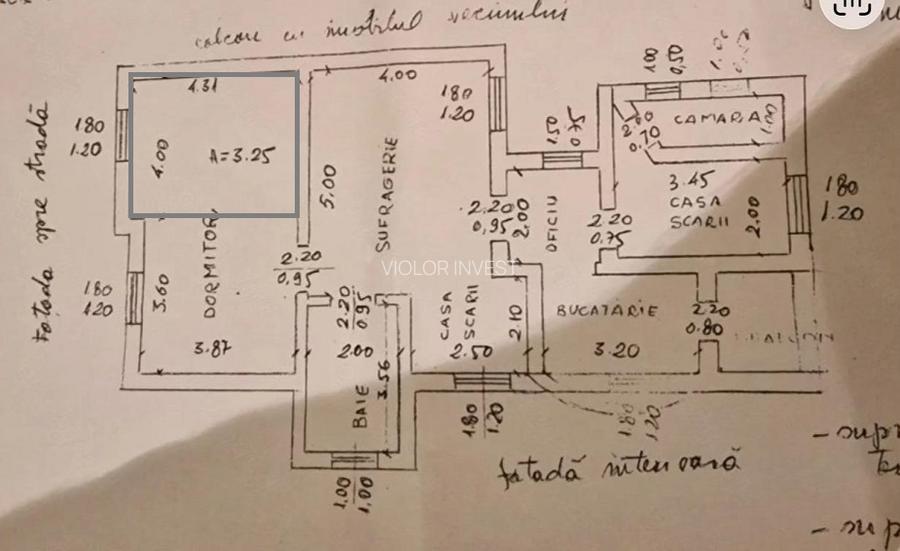 calcan cu imobilul vecinului
fatada spre stradă
1.80
1.20
4.31
4.00
A=3.25
DORMITOR
1.80
1.20
3.60
3.87
4.00
1.80
1.20
5.00
SUFRAGERIE
2.20
0,95
2.20
0.95
2.00
3.56
BAIE
1.00
1.00
CASA
SCARII
2.10
2.50
1.80
1.20
2.20
0,95
2.00
OFICIU
1.50
0.75
1.00
0,50
CAMARA
1.00
2.00
0.70
3.45
CASA
SCARII
2.00
1.80
1.20
2.20
0.75
BUCATARIE
3.20
2.20
0.80
BALCON
1.80
1.20
VIOLOR INVEST
fatadă interioară
- supr
- sup